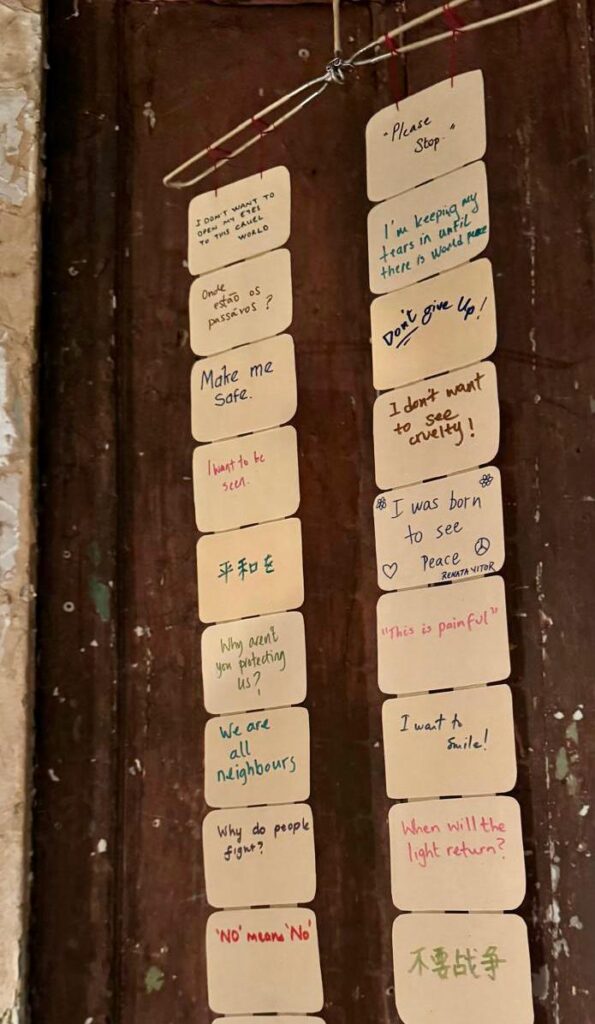 I DON'T WANT TO
OPEN MY EYES
TO THIS CRUEL
WORLD
Onde
estão os
passáros?
Make me
Safe.
I want to be
seen.
平和を
Why aren't
you protecting
us?
We are
all
neighbours
Why do people
fight?
'NO' means 'No'
"Please
Stop."
I'm keeping my
tears in until
there is World peace
Don't give Up!
I don't want
to see
cruelty!
I was born
to see
Peace
RENATA VITOR
"This is painful"
I want to
Smile!
When will the
light return?
不要战争